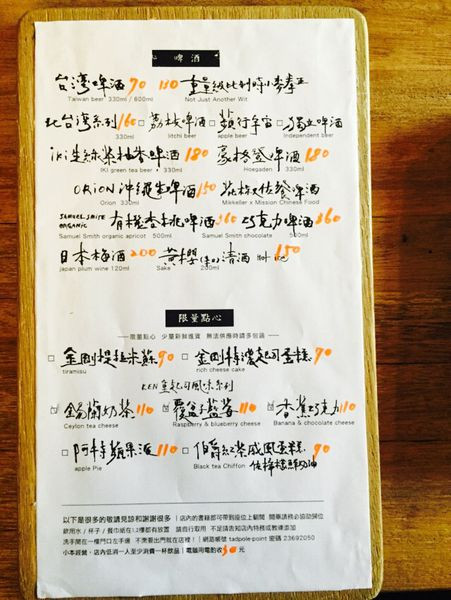 啤酒
台灣啤酒 70 130 重量級比利時小麥拳王
Taiwan beer 330ml / 600ml Not Just Another Wit
北台灣系列 160 荔枝啤酒 蘋果啤酒 獨立啤酒
330ml litchi beer apple beer Independent beer
iki 生綠茶柚香啤酒 180 豪格登啤酒 180
IKI green tea beer 330ml Hoegaden 330ml
ORiON 沖繩生啤酒 150
Orion 330ml Mikkeller x Mission Chinese Food
SAMUEL SMITH ORGANIC 有機杏桃啤酒 260 巧克力啤酒 260
Samuel Smith organic apricot 500ml Samuel Smith chocolate 500ml
日本梅酒 200 黃櫻 清酒 Hot ice 150
japan plum wine 120ml Sake 200ml
限量點心
限量點心 少量新鮮進貨 無法供應時請多包涵
金剛提拉米蘇 90 金剛特濃起司蛋糕 90
tiramisu rich cheese cake
KEN 重起司風味系列
錫蘭奶茶 110 覆盆子藍莓 110 香蕉巧克力 110
Ceylon tea cheese Raspberry & blueberry cheese Banana & chocolate cheese
阿特蘋果派 110 伯爵紅茶戚風蛋糕 90
apple Pie Black tea Chiffon 佐檸檬鮮奶油
以下是很多的敬請見諒和謝謝很多 | 店內的書籍都可帶到座位上翻閱 閱畢請務必協助歸位
飲用水 / 杯子 / 餐巾紙在1.2樓都有放置 請自行取用 不足請告知店內特務或教練添加
洗手間在一樓門口左手邊 不需要出門就在店裡! | 網路帳號 tadpole-point 密碼 23692050
小本經營,店內低消一人至少消費一杯飲品 | 電腦用電酌收 30 元